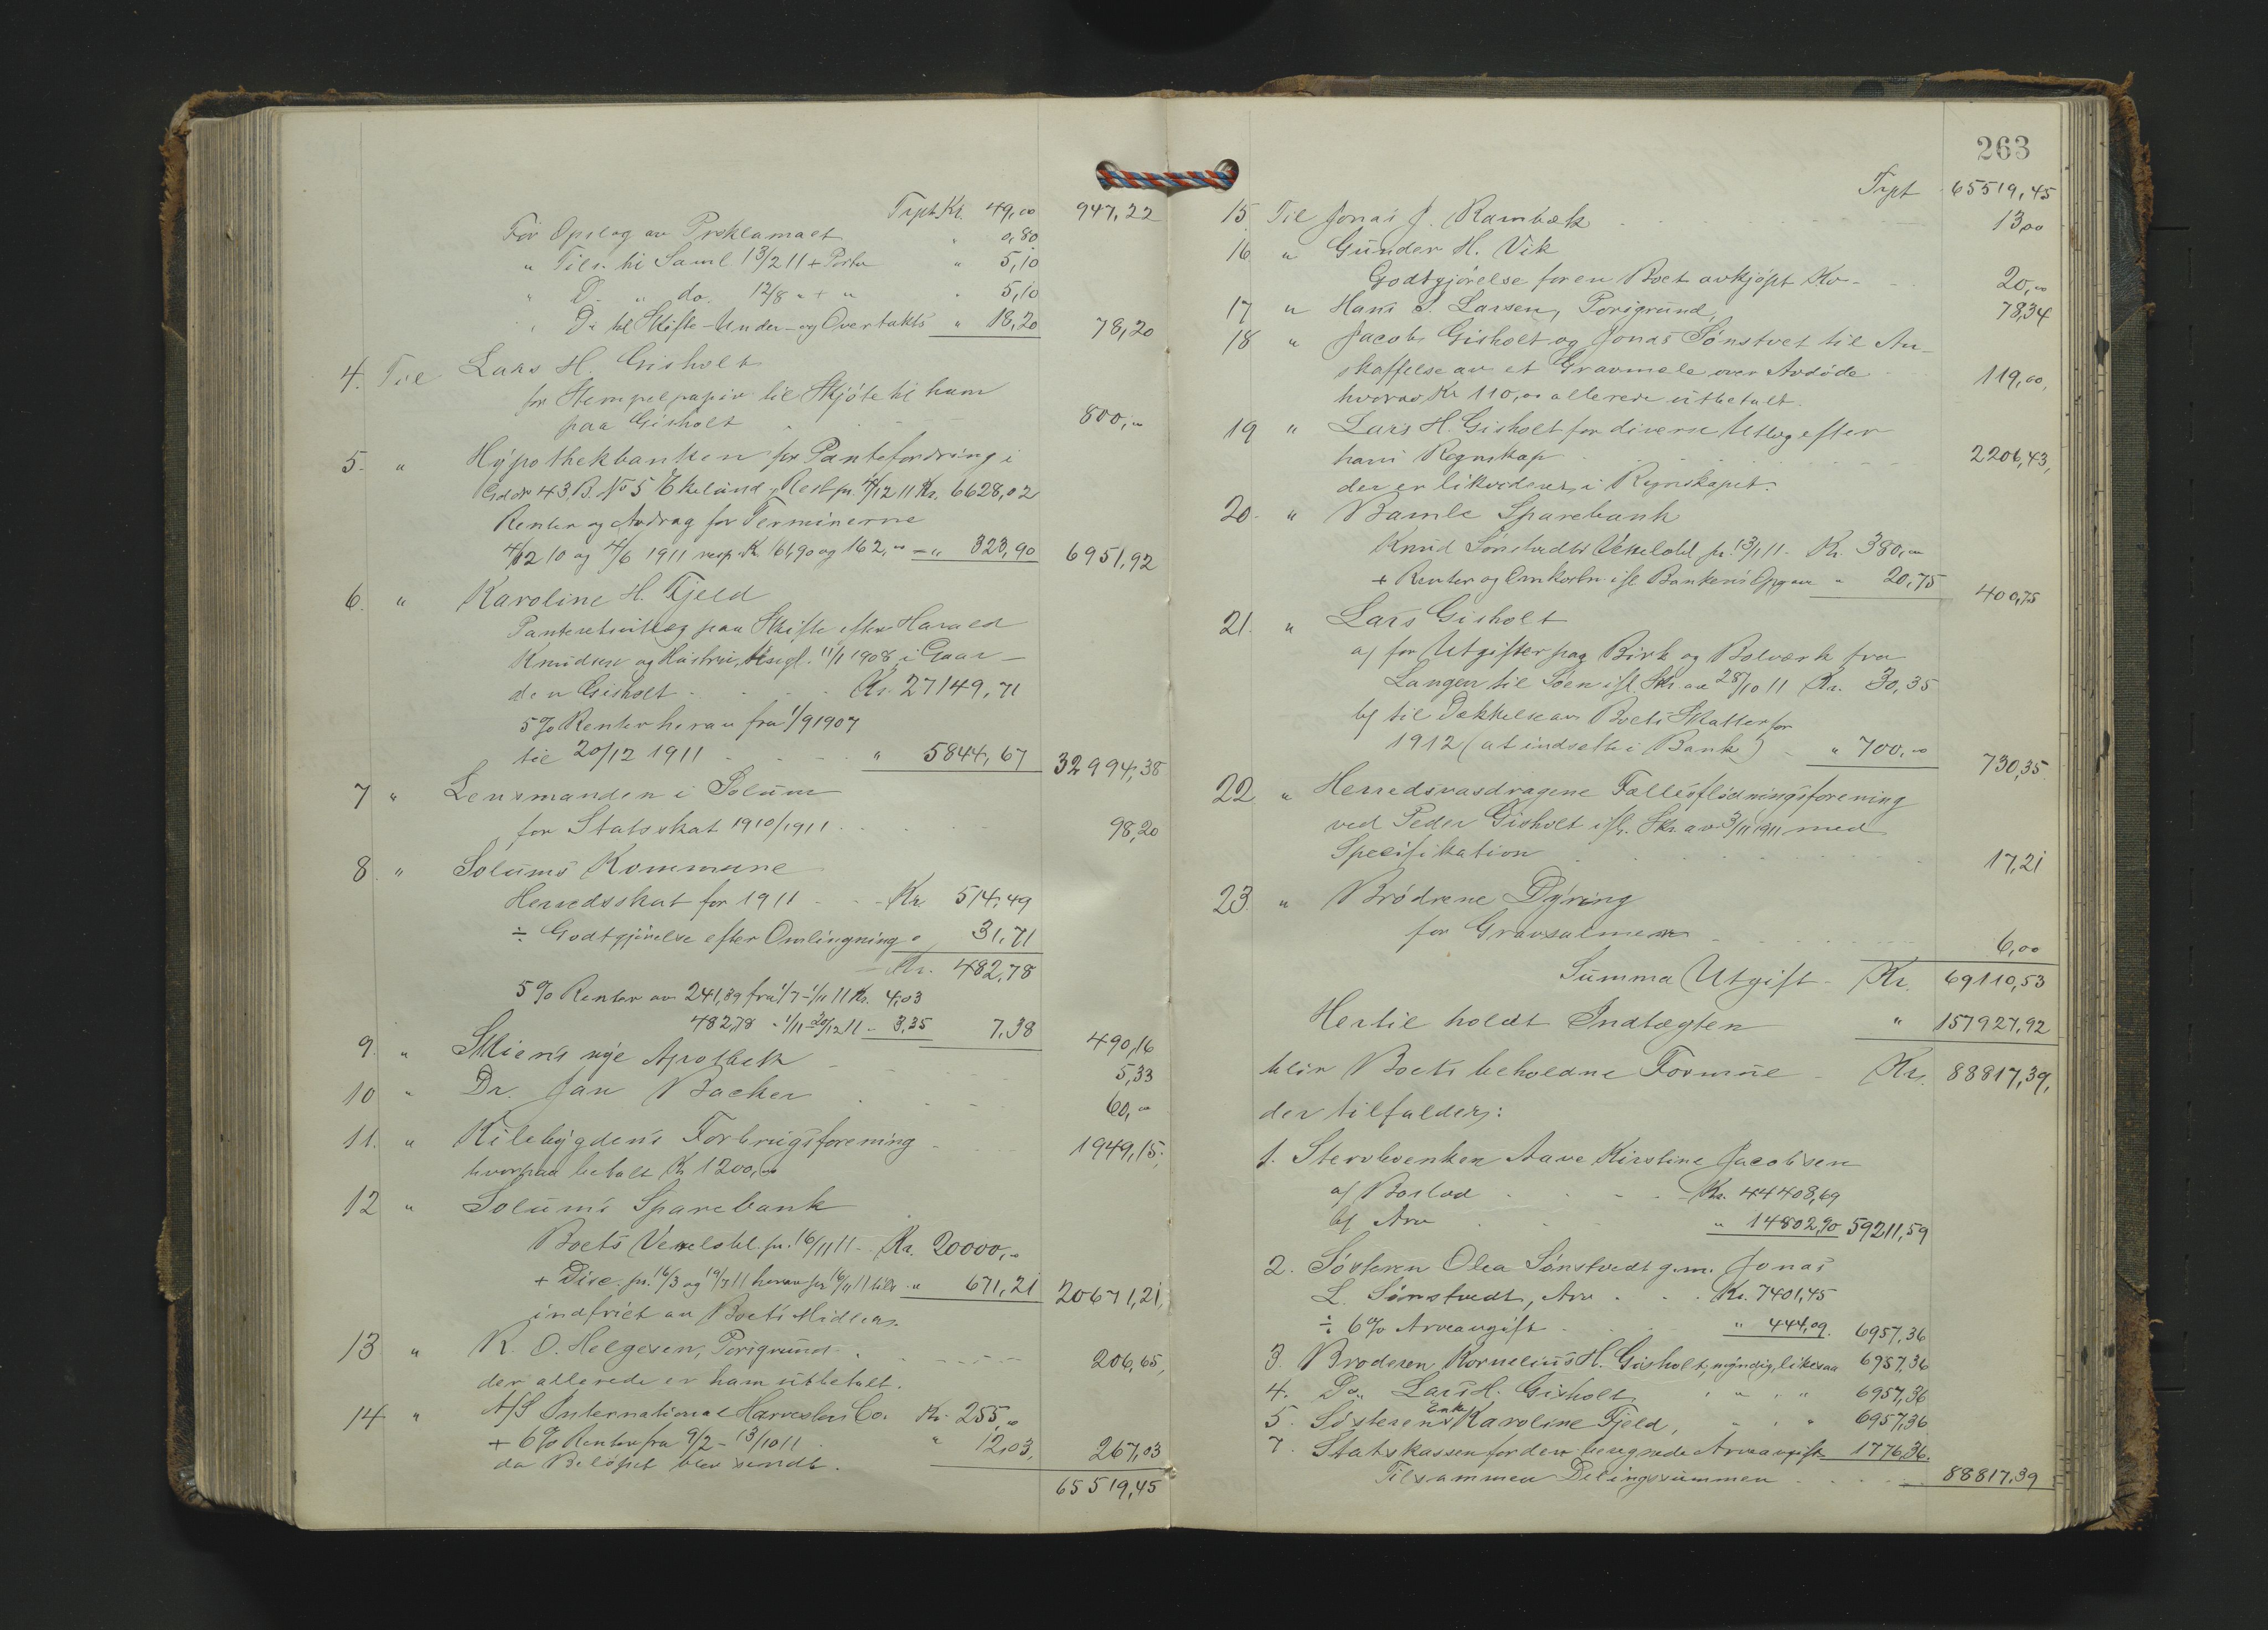 Trpt. Kr. 49,00 947,22
For Opslag av Proklamaet " 0,80
" Tils. til Saml 13/2 11 + Porto " 5,10
" Do " do. 12/8 " + " " 5,10
" Do til Skifte- Under- og Overtakts " 18,20 78,20
4. Til Lars H. Gisholt
for Stempelpapir til Skjöte til ham
paa Gisholt 800,00
5. " Hypothekbanken for Pantefordring i
G. No 43. B. No 5 Ekelund, Rest pr. 4/12 11 Kr. 6628,02
Renter og Avdrag for Terminerne
4/12 10 og 4/6 1911 resp. Kr. 161,90 og 162,00 - " 323,90 6951,92
6. " Karoline H. Fjeld
Panteutvitlæg paa Skifte efter Harald
Knudsen og Hustru, tinegl. 11/1 1908 i Gaar-
den Gisholt Kr. 27149,71
5% Renter herav fra 1/9 1907
til 20/12 1911 " 5844,67 32994,38
7 " Lensmanden i Solum
for Statsskat 1910/1911 98,20
8. " Solums Kommune
Herredsskat for 1911 - - Kr. 514,49
÷ Godtgjörelse efter Omligning " 31,71
Kr. 482,78
5% Renter av 241,39 fra 1/7 - 1/11 11 Kr. 4,03
482,78 " 1/11 - 20/12 11 - 3,35 7,38 490,16
9. " Skiens nye Apothek 5,33
10 " Dr. Jan Backer 60,00
11. " Kilebygdens Forbrugsforening 1949,15
hvorpaa betalt Kr 1200,00
12 " Solums Sparebank
Boets Vexelobl. pr. 16/11 11 - Kr. 20000,00
+ Disc. pr. 16/3 og 19/7 11 herav pr 16/11 11 tils. " 671,21 20671,21
indfriet av Boets Midler.
13 " R. O. Helgesen, Porsgrund 206,65
der allerede er ham utbetalt.
14 " A/S International Harvester Co. Kr. 255,00
+ 6% Renter fra 9/2 - 13/10 11 " 12,03 267,03
da Belöpet blev sendt.
65519,45
263
Trpt 65519,45
15. Til Jonas J. Rambæk 13,00
16 " Gunder H. Vik
Godtgjörelse for en Boet avkjöpt Ko - 20,00
17 " Hans S. Larsen, Porsgrund, 78,34
18 " Jacob Gisholt og Jonas Sönstvet til An-
skaffelse av et Gravmæle over Avdöde 119,00
hvorav Kr 110,00 allerede utbetalt.
19 " Lars H. Gisholt for diverse Utlæg efter
hans Regnskap 2206,43
der er likvideres i Regnskapet.
20. " Bamle Sparebank
Knud Sönstvedts Vexelobl pr. 13/1 11 - Kr. 380,00
+ Renter og Omkostn. ifl. Bankens Opgave " 20,75 400,75
21. " Lars Gisholt
a) for Utgifter paa Birk og Bolværk fra
Langen til Soen ifl. Skr. av 28/10 11 Kr. 30,35
b) til Dækkelse av Boets Skatter for
1912 (at indsætte i Bank) - " 700,00 730,35
22 " Herredsvasdragene Fællesflödningsforening
ved Peder Gisholt ifl. Skr. av 3/11 1911 med
Specifikation 17,21
23 " Brödrene Dyring
for Gravsalmer 6,00
Summa Utgift - Kr. 69110,53
Hertil holdt Indtægten " 157927,92
blir Boets beholdne Formue - Kr. 88817,39,
der tilfalder:
1. Stervboenken Aave Kirstine Jacobsen
a) Boslod Kr. 44408,69
b) Arv " 14802,90 59211,59
2. Sösteren Olea Sönstvedt g. m. Jonas
L. Sönstvedt, Arv Kr. 7401,45
÷ 6% Arveavgift " 444,09 6957,36
3. Broderen Kornelius H. Gisholt, myndig, likesaa 6957,36
4. Do. Lars H. Gisholt " " " 6957,36
5. Sösteren Enke Karoline Fjeld, " " " 6957,36
7. Statskassen for den beregnede Arveavgift 1776,36
Tilsammen Delingssummen 88817,39